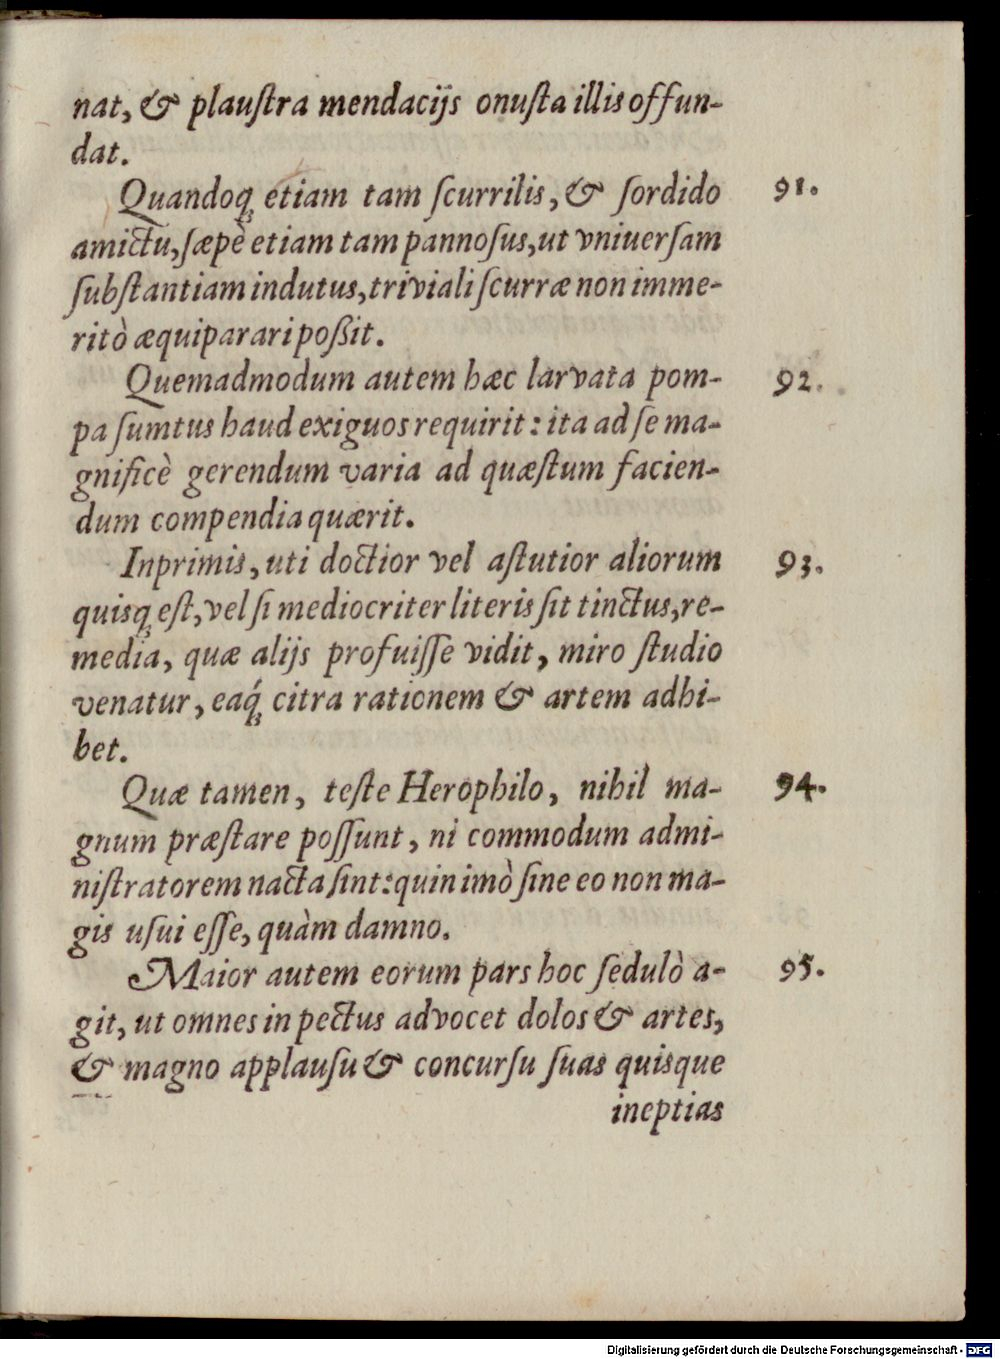 nat, & plauſtra mendacijs onuſta illis offun-
dat.
Quandoq́; etiam tam ſcurrilis, & ſordido 91.
amictu, ſæpè etiam tam pannoſus, ut vniuerſam
ſubſtantiam indutus, triviali ſcurræ non imme-
ritò æquiparari poßit.
Quemadmodum autem hæc larvata pom- 92.
pa ſumtus haud exiguos requirit: ita ad ſe ma-
gnificè gerendum varia ad quæſtum facien-
dum compendia quærit.
Inprimis, uti doctior vel aſtutior aliorum 93.
quisq; eſt, vel ſi mediocriter literis ſit tinctus, re-
media, quæ alijs profuiſſe vidit, miro ſtudio
venatur, eaq́; citra rationem & artem adhi-
bet.
Quæ tamen, teſte Herophilo, nihil ma- 94.
gnum præſtare poſſunt, ni commodum admi-
niſtratorem nacta ſint: quin imò ſine eo non ma-
gis uſui eſſe, quàm damno.
Maior autem eorum pars hoc ſedulò a- 95.
git, ut omnes in pectus advocet dolos & artes,
& magno applauſu & concurſu ſuas quisque
ineptias
Digitalisierung gefördert durch die Deutsche Forschungsgemeinschaft - DFG